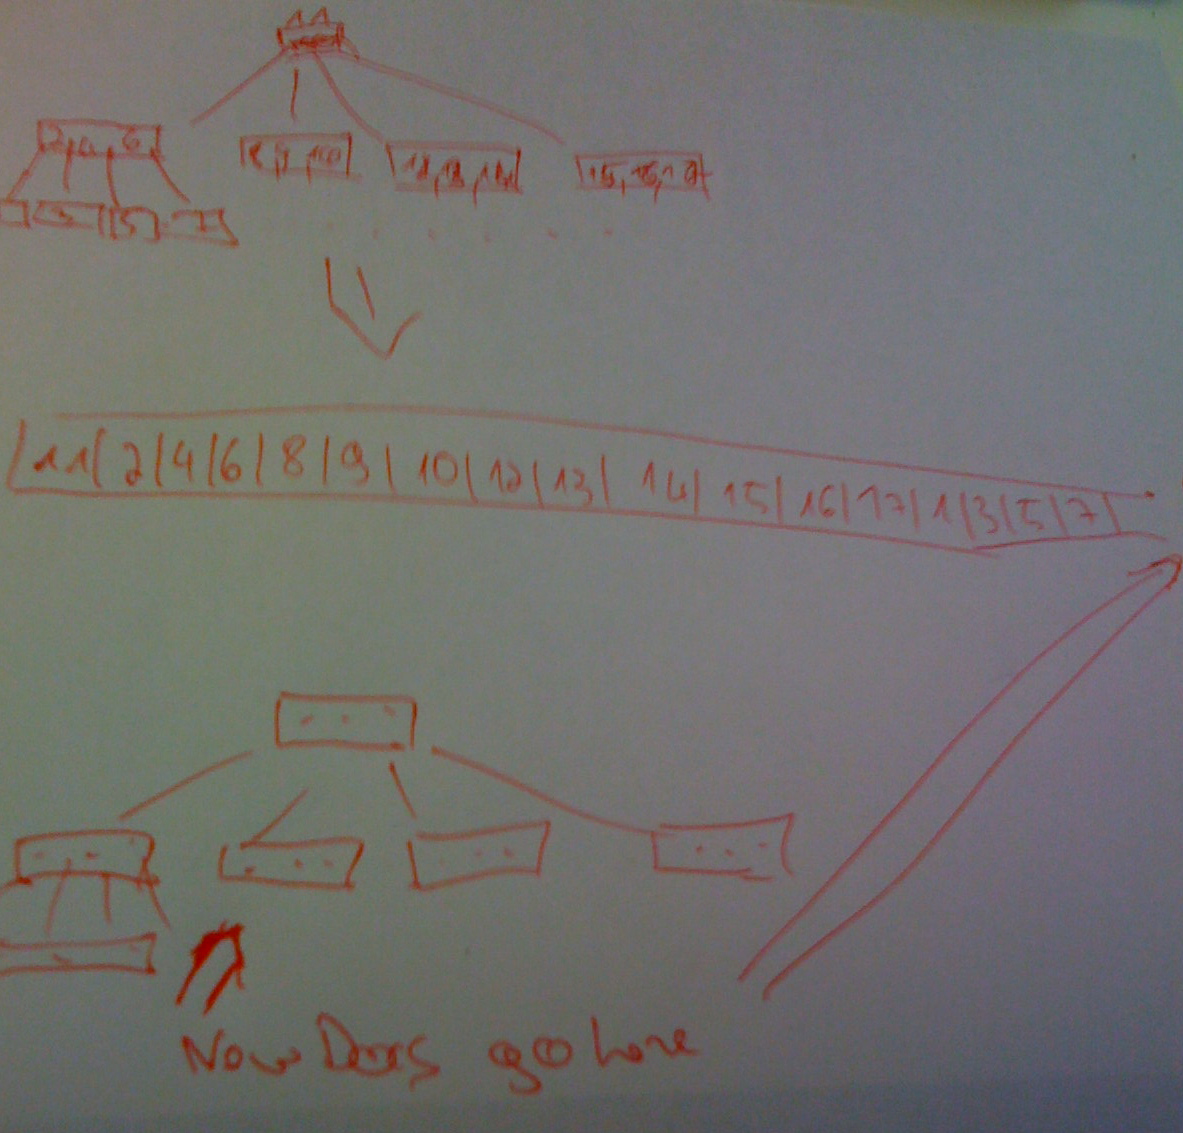 11
2, 4, 6
8, 9, 10
12, 13, 14
15, 16, 17
3 5 7
11 2 4 6 8 9 10 12 13 14 15 16 17 1 3 5 7
New Docs go here